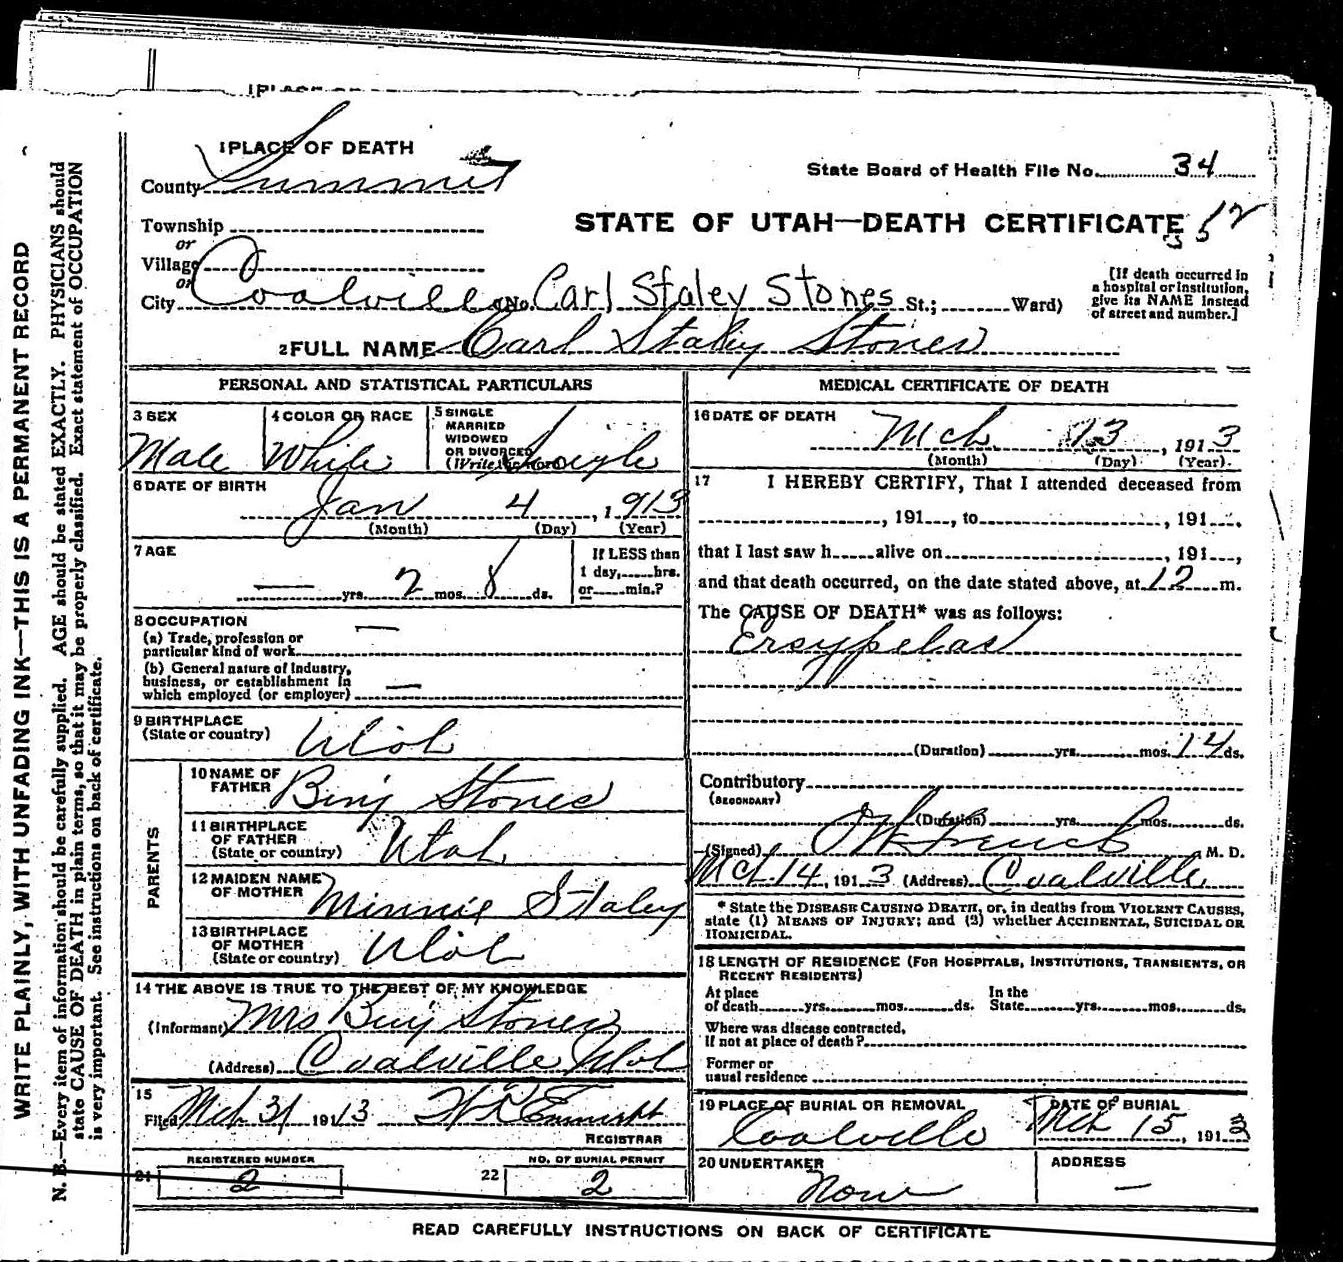 1 PLACE OF DEATH
County Summit
State Board of Health File No. 34
STATE OF UTAH—DEATH CERTIFICATE
52
Township
or
Village
or
City Coalville No. Carl Staley Stones St.; Ward)
[If death occurred in
a hospital or institution,
give its NAME instead
of street and number.]
2 FULL NAME Carl Staley Stones
PERSONAL AND STATISTICAL PARTICULARS
3 SEX
Male
4 COLOR OR RACE
White
5 SINGLE
MARRIED
WIDOWED
OR DIVORCED
(Write the word) Single
6 DATE OF BIRTH
Jan 4, 1913
(Month) (Day) (Year)
7 AGE
— yrs. 2 mos. 8 ds.
If LESS than
1 day,......hrs.
or......min.?
8 OCCUPATION
(a) Trade, profession or
particular kind of work —
(b) General nature of industry,
business, or establishment in
which employed (or employer) —
9 BIRTHPLACE
(State or country) Utah
PARENTS
10 NAME OF
FATHER Binj Stones
11 BIRTHPLACE
OF FATHER
(State or country) Utah
12 MAIDEN NAME
OF MOTHER Minnie Staley
13 BIRTHPLACE
OF MOTHER
(State or country) Utah
14 THE ABOVE IS TRUE TO THE BEST OF MY KNOWLEDGE
(Informant) Mrs Binj Stones
(Address) Coalville Utah
15
Filed Mch 31 1913
REGISTRAR
REGISTERED NUMBER
21 2
NO. OF BURIAL PERMIT
22 2
MEDICAL CERTIFICATE OF DEATH
16 DATE OF DEATH
Mch 13, 1913
(Month) (Day) (Year)
17 I HEREBY CERTIFY, That I attended deceased from
, 191..., to , 191...,
that I last saw h......alive on , 191...,
and that death occurred, on the date stated above, at 12 m.
The CAUSE OF DEATH* was as follows:
Ersypelas
(Duration) yrs. mos. 14 ds.
Contributory
(SECONDARY)
(Duration) yrs. mos. ds.
(Signed) M. D.
Mch 14, 1913 (Address) Coalville
* State the DISEASE CAUSING DEATH, or, in deaths from VIOLENT CAUSES,
state (1) MEANS OF INJURY; and (2) whether ACCIDENTAL, SUICIDAL OR
HOMICIDAL.
18 LENGTH OF RESIDENCE (FOR HOSPITALS, INSTITUTIONS, TRANSIENTS, OR
RECENT RESIDENTS)
At place In the
of death yrs. mos. ds. State yrs. mos. ds.
Where was disease contracted,
if not at place of death?
Former or
usual residence
19 PLACE OF BURIAL OR REMOVAL
Coalville
DATE OF BURIAL
Mch 15, 1913
20 UNDERTAKER
None
ADDRESS
—
READ CAREFULLY INSTRUCTIONS ON BACK OF CERTIFICATE
WRITE PLAINLY, WITH UNFADING INK—THIS IS A PERMANENT RECORD
N. B.—Every item of information should be carefully supplied. AGE should be stated EXACTLY. PHYSICIANS should
state CAUSE OF DEATH in plain terms, so that it may be properly classified. Exact statement of OCCUPATION
is very important. See instructions on back of certificate.